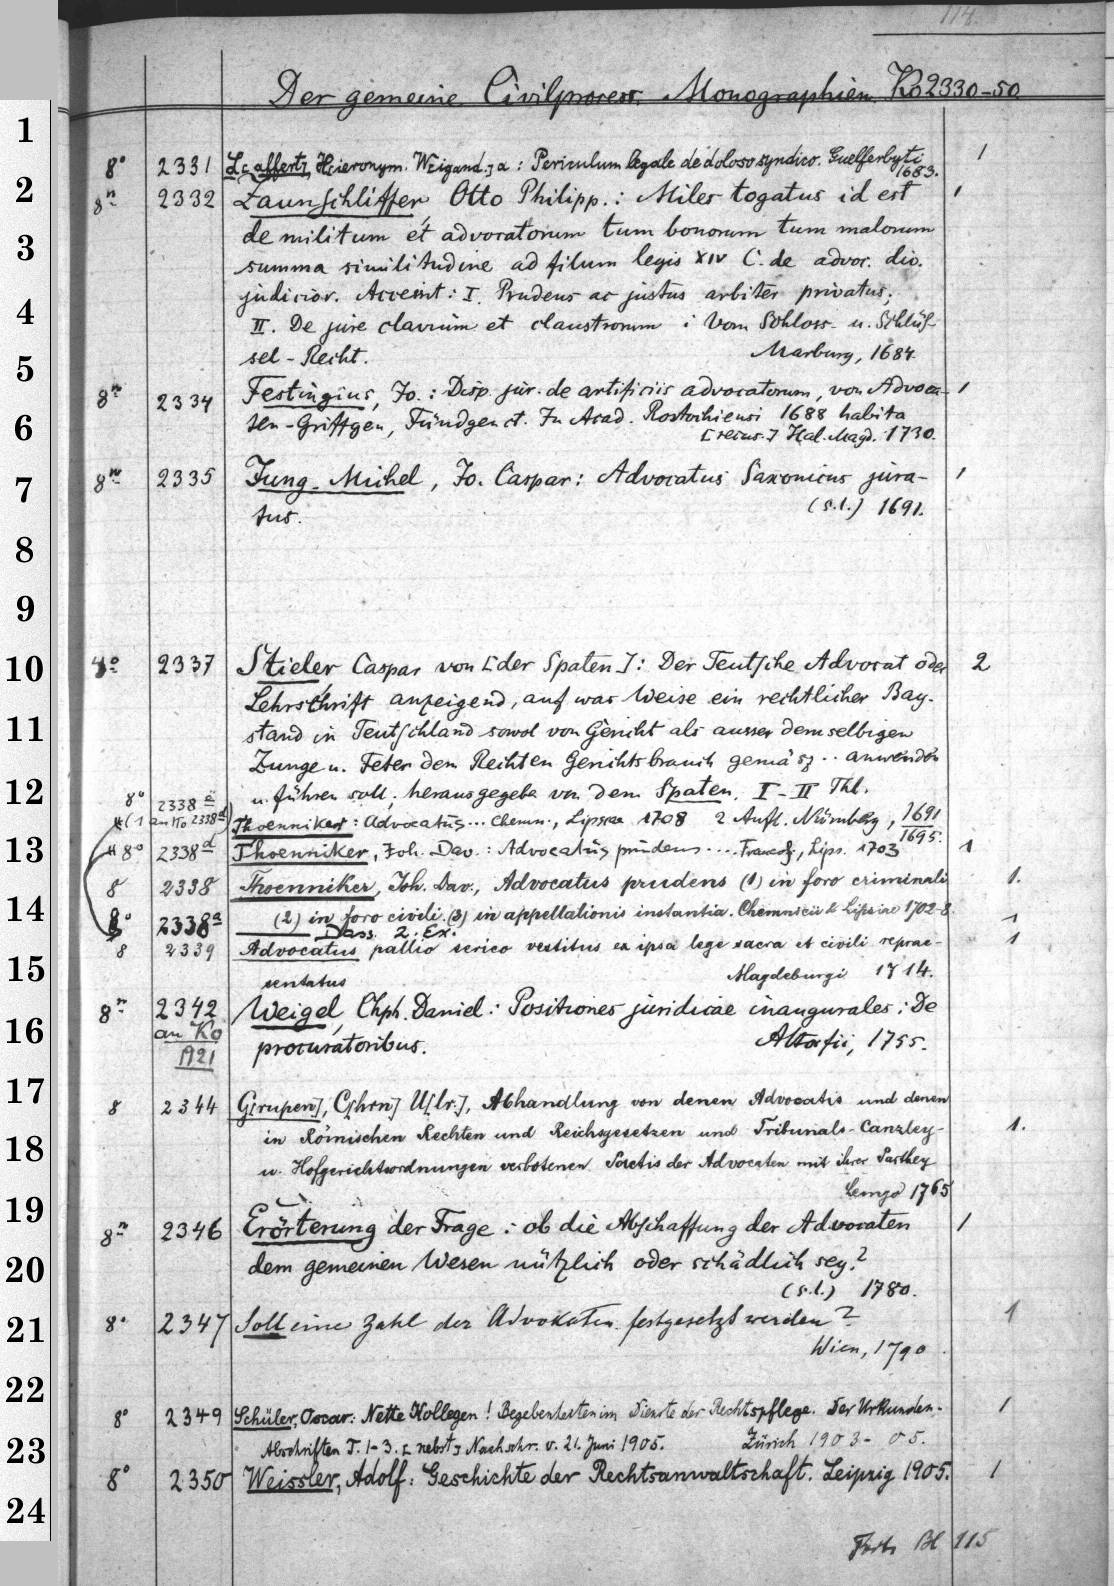 114.
Der gemeine Civilprocess. Monographien. Ko 2330-50
1
8° 2331 L[c]affert[z], Hieronym. W[eigand.] a: Periculum legale de doloso syndico. Guelferbyti 1
1683.
2
8° 2332 Zaunschliffer, Otto Philipp.: Miles togatus id est 1
3
de militum et advocatorum tum bonorum tum malorum
summa similitudine ad filum legis XIV C. de advoc. div.
4
judicior. Accesint: I. Prudens ac justus arbiter privatus;
II. De jure clavium et claustrorum i Vom Schloss- u. Schlüs-
5
sel-Recht. Marburg, 1684.
8° 2334 Festingius, Jo.: Disp. jur. de artificiis advocatorum, von Advoca- 1
6
ten-Griffgen, Fündgen ct. In Acad. Rostochiensi 1688 habita
[recus.] Hal. Magd. 1730.
7
8° 2335 Jung-Michel, Jo. Caspar: Advocatus Saxonicus jura- 1
tus. (s.l.) 1691.
8
9
10
4° 2337 Stieler, Caspar von [der Spaten]: Der Teutsche Advocat oder 2
Lehrschrift anzeigend, auf was Weise ein rechtlicher Bay-
11
stand in Teutschland sowol von Gericht als ausser demselbigen
Zunge u. Feter dem Rechten Gerichtsbrauch gemäsz .. anwenden
12
u. führen soll; herausgegebe von dem Spaten. I-II Thl.
8° 2338 a
(1 an Ko 2338 d) Thoenniker: Advocatus... Chemn., Lipsiae 1708 2 Aufl. Nürnberg, 1691
1695.
13
8° 2338 d Thoenniker, Joh. Dav.: Advocatus prudens .... , Lips. 1703 1
8 2338 Thoenniker, Joh. Dav., Advocatus prudens (1) in foro criminali 1.
14
8° 2338a (2) in foro civili (3) in appellationis instantia. Chemnicii & Lipsiae 1702-8. 1
Dass. 2. Ex.
8 2339 Advocatus pallio serico vestitus ex ipsa lege sacra et civili reprae- 1
15
sentatus Magdeburgi 1714.
8° 2342 Weigel, Chph. Daniel: Positiones juridicae inaugurales: De
16
an Ko 1921 procuratoribus. Altorfii, 1755.
17
8 2344 G[rupen], C[hrn] U[lr.], Abhandlung von denen Advocatis und denen
in Römischen Rechten und Reichsgesetzen und Tribunals-Canzley- 1.
18
u. Hofgerichtsordnungen verbotenen Pactis der Advocaten mit ihrer Parthey
Lemgo 1765
19
8° 2346 Erörterung der Frage: ob die Abschaffung der Advocaten 1
20
dem gemeinen Wesen nützlich oder schädlich sey?
(s.l.) 1780.
21
8° 2347 Soll eine Zahl der Advokaten festgesetzt werden? 1
Wien, 1790
22
8° 2349 Schüler, Oscar: Nette Kollegen! Begebenheiten im Dienste der Rechtspflege. Der Urkunden- 1
23
Abschriften T. 1-3. [nebst] Nachschr. v. 21. Juni 1905. Zürich 1903-05.
8° 2350 Weissler, Adolf: Geschichte der Rechtsanwaltschaft. Leipzig 1905. 1
24
Forts Bl 115